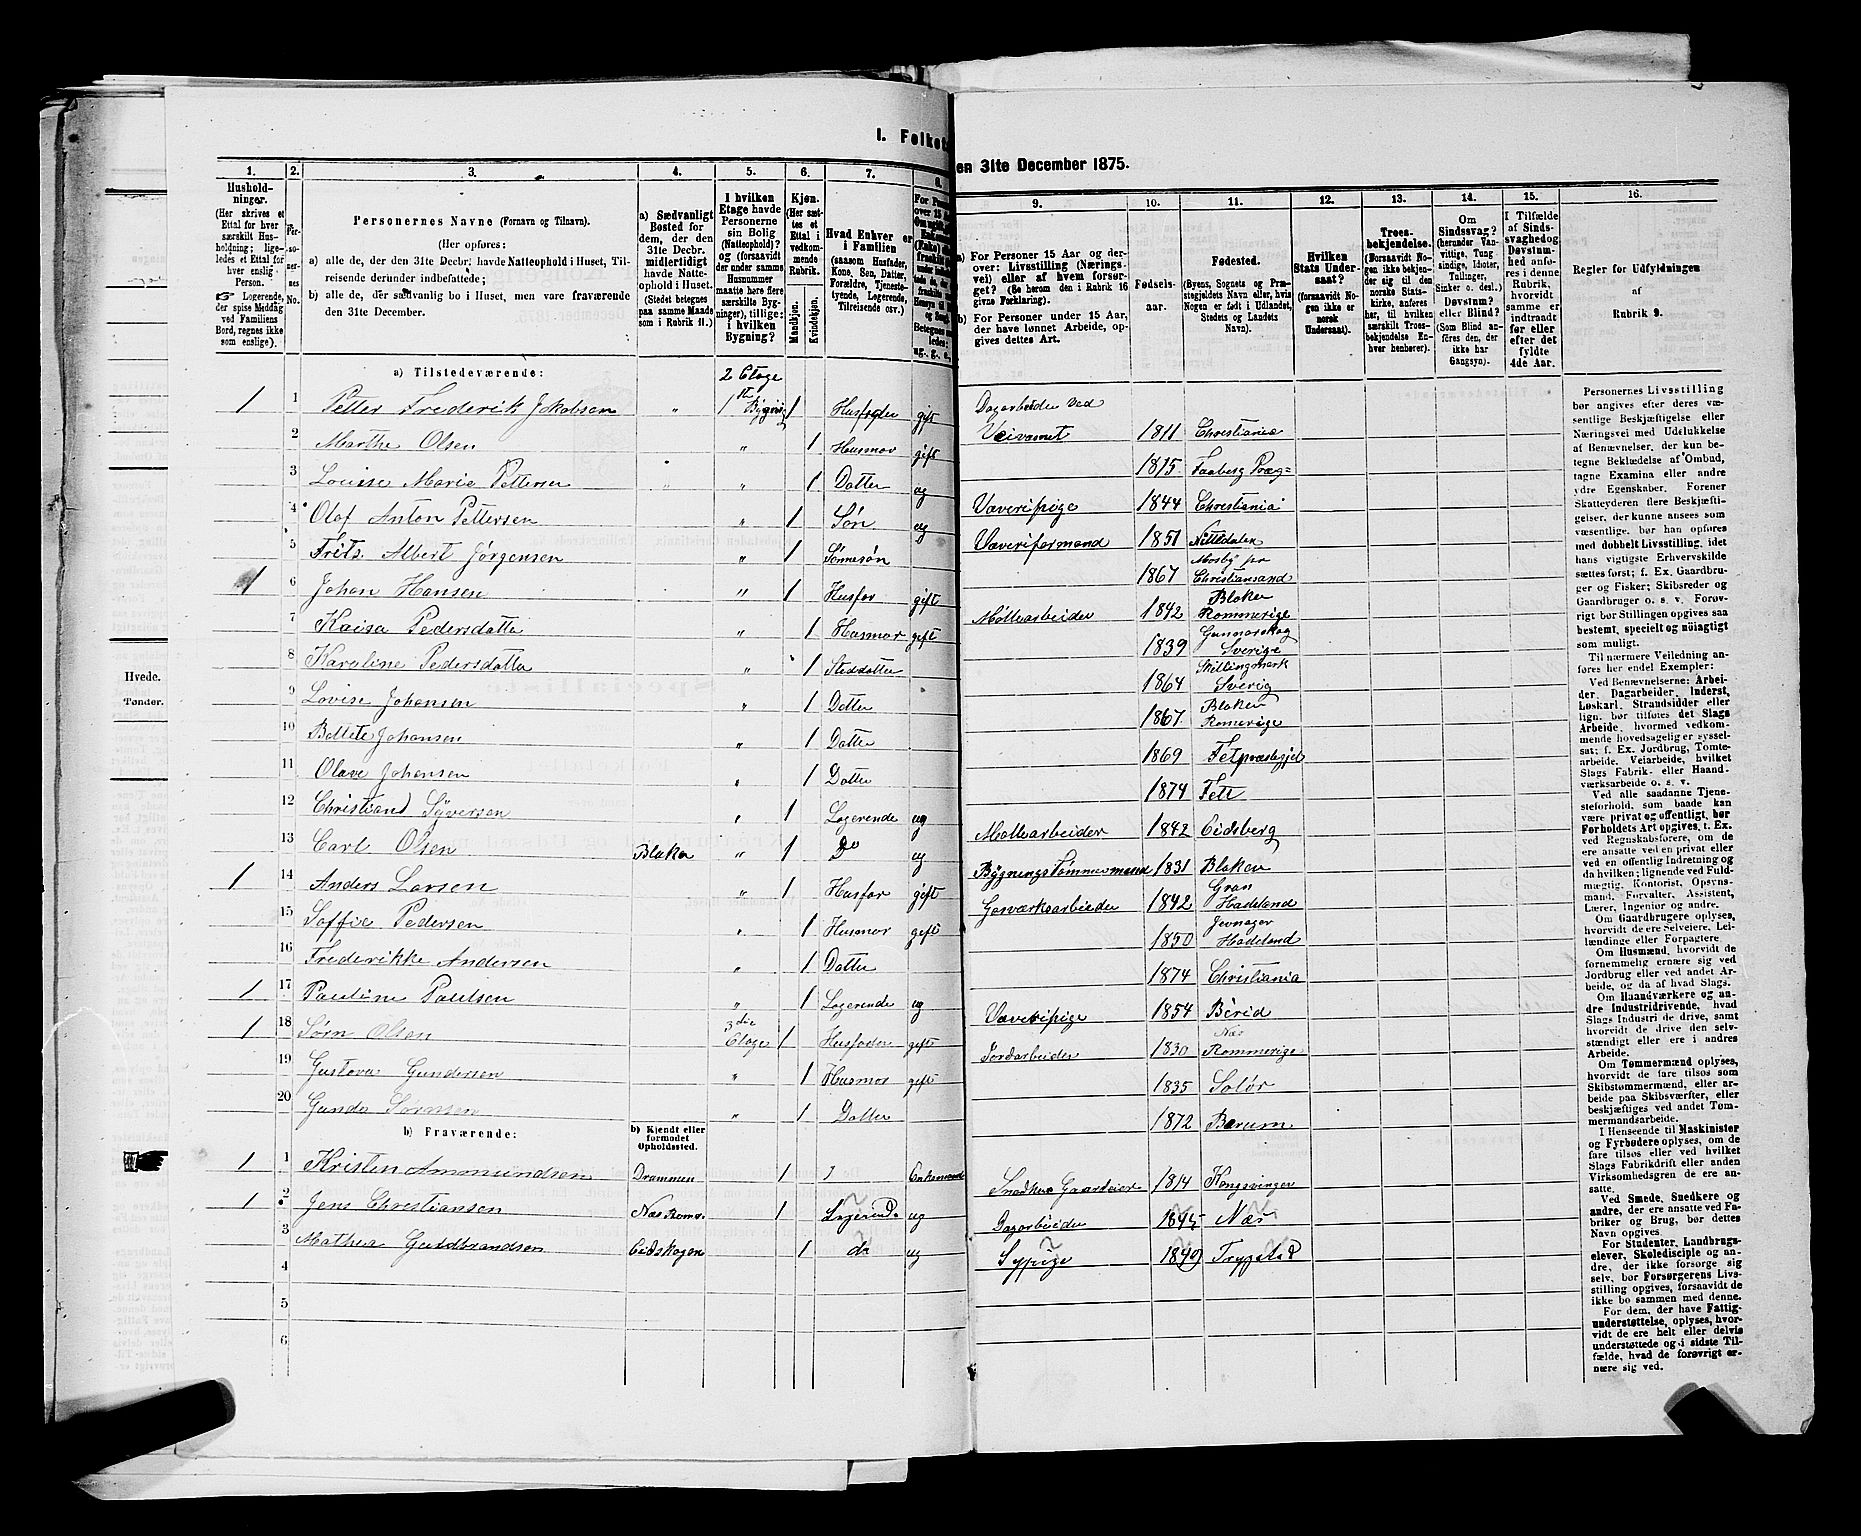 I. Folket
en 31te December 1875.
1. 2. 3. 4. 5. 6. 7. 8. 9. 10. 11. 12. 13. 14. 15. 16.
Hushold-
ninger.
(Her skrives et
Ettal for hver
særskilt Hus-
holdning; lige-
ledes et Ettal for
hver enslig
Person.
☞ Logerende,
der spise Middag
ved Familiens
Bord, regnes ikke
som enslige).
Personernes No.
Personernes Navne (Fornavn og Tilnavn).
(Her opføres:
a) alle de, der den 31te Decbr. havde Natteophold i Huset, Til-
reisende derunder indbefattede;
b) alle de, der sædvanlig bo i Huset, men vare fraværende
den 31te December.
a) Sædvanligt
Bosted for
dem, der den
31te Decbr.
midlertidigt
havde Natte-
ophold i Huset.
(Stedet betegnes
paa samme Maade
som i Rubrik 11.)
I hvilken
Etage havde
Personerne
sin Bolig
(Natteophold)?
og (forsaavidt
der under samme
Husnummer
maatte høre flere
særskilte Byg-
ninger), tillige:
i hvilken
Bygning?
Kjøn.
(Her sæt-
tes et
Ettal i
vedkom-
mende
Rubrik.
Mandkjøn.
Kvindekjøn.
Hvad Enhver er
i Familien
(saasom Husfader,
Kone, Søn, Datter,
Forældre, Tjeneste-
tyende, Logerende,
Tilreisende osv.)
a) For Personer 15 Aar og der-
over: Livsstilling (Nærings-
vei) eller af hvem forsør-
get? (Se herom den i Rubrik 16
givne Forklaring).
b) For Personer under 15 Aar,
der have lønnet Arbeide, op-
gives dettes Art.
Fødsels-
aar.
Fødested.
(Byens, Sognets og Præ-
stegjeldets Navn eller, hvis
Nogen er født i Udlandet,
Stedets og Landets
Navn).
Hvilken
Stats Under-
saat?
(forsaavidt No-
gen ikke er
norsk
Undersaat).
Troes-
bekjendelse.
(Forsaavidt No-
gen ikke bekjen-
der sig til den
norske Stats-
kirke, anføres
her, til hvilken
særskilt Troes-
bekjendelse En-
hver henhører).
Om
Sindssvag?
(herunder Van-
vittige, Tung-
sindige, Idioter,
Tullinger,
Sinker o. desl.)
Døvstum?
eller Blind?
(Som Blind an-
føres den, der
ikke har
Gangsyn).
I Tilfælde
af Sinds-
svaghed og
Døvstum-
hed anfø-
res i denne
Rubrik,
hvorvidt
samme er
indtraadt
før eller
efter det
fyldte
4de Aar.
Regler for Udfyldningen
af
Rubrik 9.
a) Tilstedeværende: 2 Etage
1 1 Petter Frederik Jakobsen " 1 1 Husfader gift Dagarbeider ved Veivæsnet 1811 Christiania
2 Marthe Olsen " 1 Husmor gift 1815 Faaberg Præg=
3 Louise Marie Pettersen " " 1 Datter ug Væveripige 1844 Christiania
4 Olaf Anton Pettersen " 1 Søn ug Væveriformand 1851 Nittedalen
5 Frits Albert Jørgensen " 1 Sønnesøn 1867 Mosby pr Christiansand
1 6 Johan Hansen " 1 Husfar gift Møllearbeider 1842 Blaker Rommerige
7 Kaisa Pedersdatter " 1 Husmor gift 1839 Gunnarskog Sverige
8 Karoline Pedersdatter " 1 Steddatter 1864 Skillingmark Sverig
9 Lovise Johansen " 1 Datter 1867 Blaker Romerige
10 Bollete Johansen " 1 Datter 1869 Fetpræstegjel
11 Olave Johansen " 1 Datter 1874 Fett
12 Christiand Syversen " 1 Logerende ug Møllearbeider 1842 Eidsberg
13 Carl Olsen Blaker " 1 Do ug BygningsTømmermand 1831 Blaker
1 14 Anders Larsen " 1 Husfar gift Gasværksarbeider 1842 Gran Hadeland
15 Soffie Pedersen " 1 Husmor gift 1850 Jevnager Hadeland
16 Frederikke Andersen " 1 Datter 1874 Christiania
1 17 Pauline Paulsen " 1 Logerende ug Væveripige 1854 Berid
1 18 Sørn Olsen 3die Etage 1 Husfader gift Jordarbeider 1830 Næs Rommerige
19 Gustava Gundersen " 1 Husmor gift 1835 Solør
20 Gunda Sørnsen " 1 Datter 1872 Bærum
b) Fraværende:
b) Kjendt eller
formodet
Opholdssted.
1 1 Kristen Ammundsen Drammen 1 Enkemand 1814 Kongsvinger
1 2 Jens Christiansen Næs Romer. 1 Logerende ug Dagarbeider 1845 Næs
3 Mathea Guldbrandsen Eidskogen 1 do ug Sypige 1849 Trygstad
4
5
6
Hvede.
Tønder.
Personernes Livsstilling
bør angives efter deres væ-
sentlige Beskjæftigelse eller
Næringsvei med Udelukkelse
af Benævnelser, der kun be-
tegne Beklædelse af Ombud,
tagne Examina eller andre
ydre Egenskaber. Forener
Skatteyderen flere Beskjæfti-
gelser, der kunne ansees som
væsentlige, bør han opføres
med dobbelt Livsstilling, idet
hans vigtigste Erhvervskilde
sættes først; f. Ex. Gaardbru-
ger og Fisker; Skibsreder og
Gaardbruger o. s. v. Forøv-
rigt bør Stillingen opgives saa
bestemt, specielt og nøiagtigt
som muligt.
Til nærmere Veiledning an-
føres her endel Exempler:
Ved Benævnelserne: Arbei-
der, Dagarbeider, Inderst,
Løskarl, Strandsidder eller
lign. bør tilføies det Slags
Arbeide, hvormed vedkom-
mende hovedsagelig er syssel-
sat; f. Ex. Jordbrug, Tomte-
arbeide, Veiarbeide, hvilket
Slags Fabrik- eller Haand-
værksarbeide o. s. v.
Ved alle saadanne Tjene-
steforhold, som baade kan
være privat og offentligt, bør
Forholdets Art opgives, t. Ex.
ved Regnskabsførere, om de
ere ansatte ved en privat eller
ved en offentlig Indretning og
da hvilken; lignende ved Fuld-
mægtig, Kontorist, Opsyns-
mand, Forvalter, Assistent,
Lærer, Ingeniør og andre.
Om Gaardbrugere oplyses,
hvorvidt de ere Selveiere, Lei-
lændinge eller Forpagtere.
Om Husmænd, hvorvidt de
fornemmelig ernære sig ved
Jordbrug eller ved andet Ar-
beide, og da af hvad Slags.
Om Haandværkere og an-
dre Industridrivende, hvad
Slags Industri de drive, samt
hvorvidt de drive den selv-
stændigt eller ere i andres
Arbeide.
Om Tømmermænd oplyses,
hvorvidt de fare tilsøs som
Skibstømmermænd, eller ar-
beide paa Skibsværfter, eller
beskjæftiges ved andet Tøm-
mermandsarbeide.
I Henseende til Maskinister
og Fyrbødere oplyses, om de
fare tilsøs eller ved hvilket
Slags Fabrikdrift eller anden
Virksomhedsgren de ere an-
satte.
Ved Smede, Snedkere og
andre, der ere ansatte ved Fa-
briker og Brug, bør dettes
Navn opgives.
For Studenter, Landbrugs-
elever, Skoledisciple og an-
dre, der ikke forsørge sig
selv, bør Forsørgerens Livs-
stilling opgives, forsaavidt de
ikke bo sammen med denne.
For dem, der have Fattig-
understøttelse, oplyses, hvor-
vidt de ere helt eller delvis
understøttede og i sidste Til-
fælde, hvad de forøvrigt er-
nære sig ved.